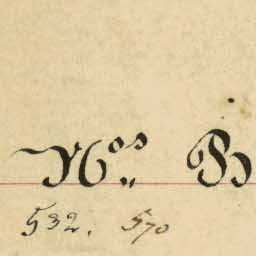 Nos. B
532. 570